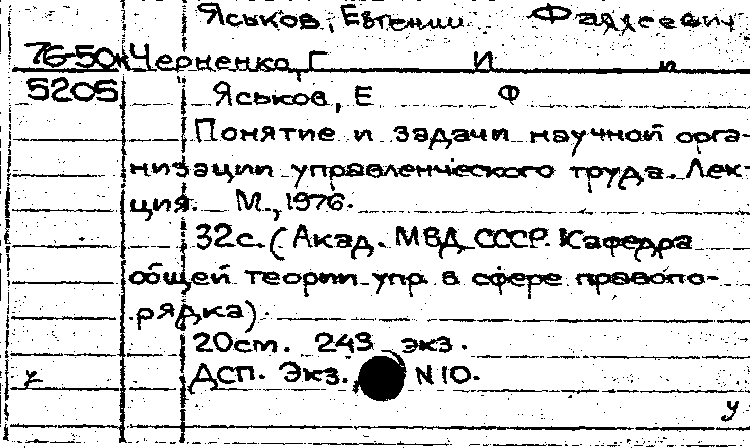 Яськов, Евгений Фаддеевич
76-50к Черненко, Г И и
5205 Яськов, Е Ф
Понятие и задачи научной орга-
низации управленческого труда. Лек-
ция. М., 1976.
32с. (Акад. МВД СССР. Кафедра
общей теории упр. в сфере правопо-
рядка).
20см. 243 экз.
ДСП. Экз. N 10.
у